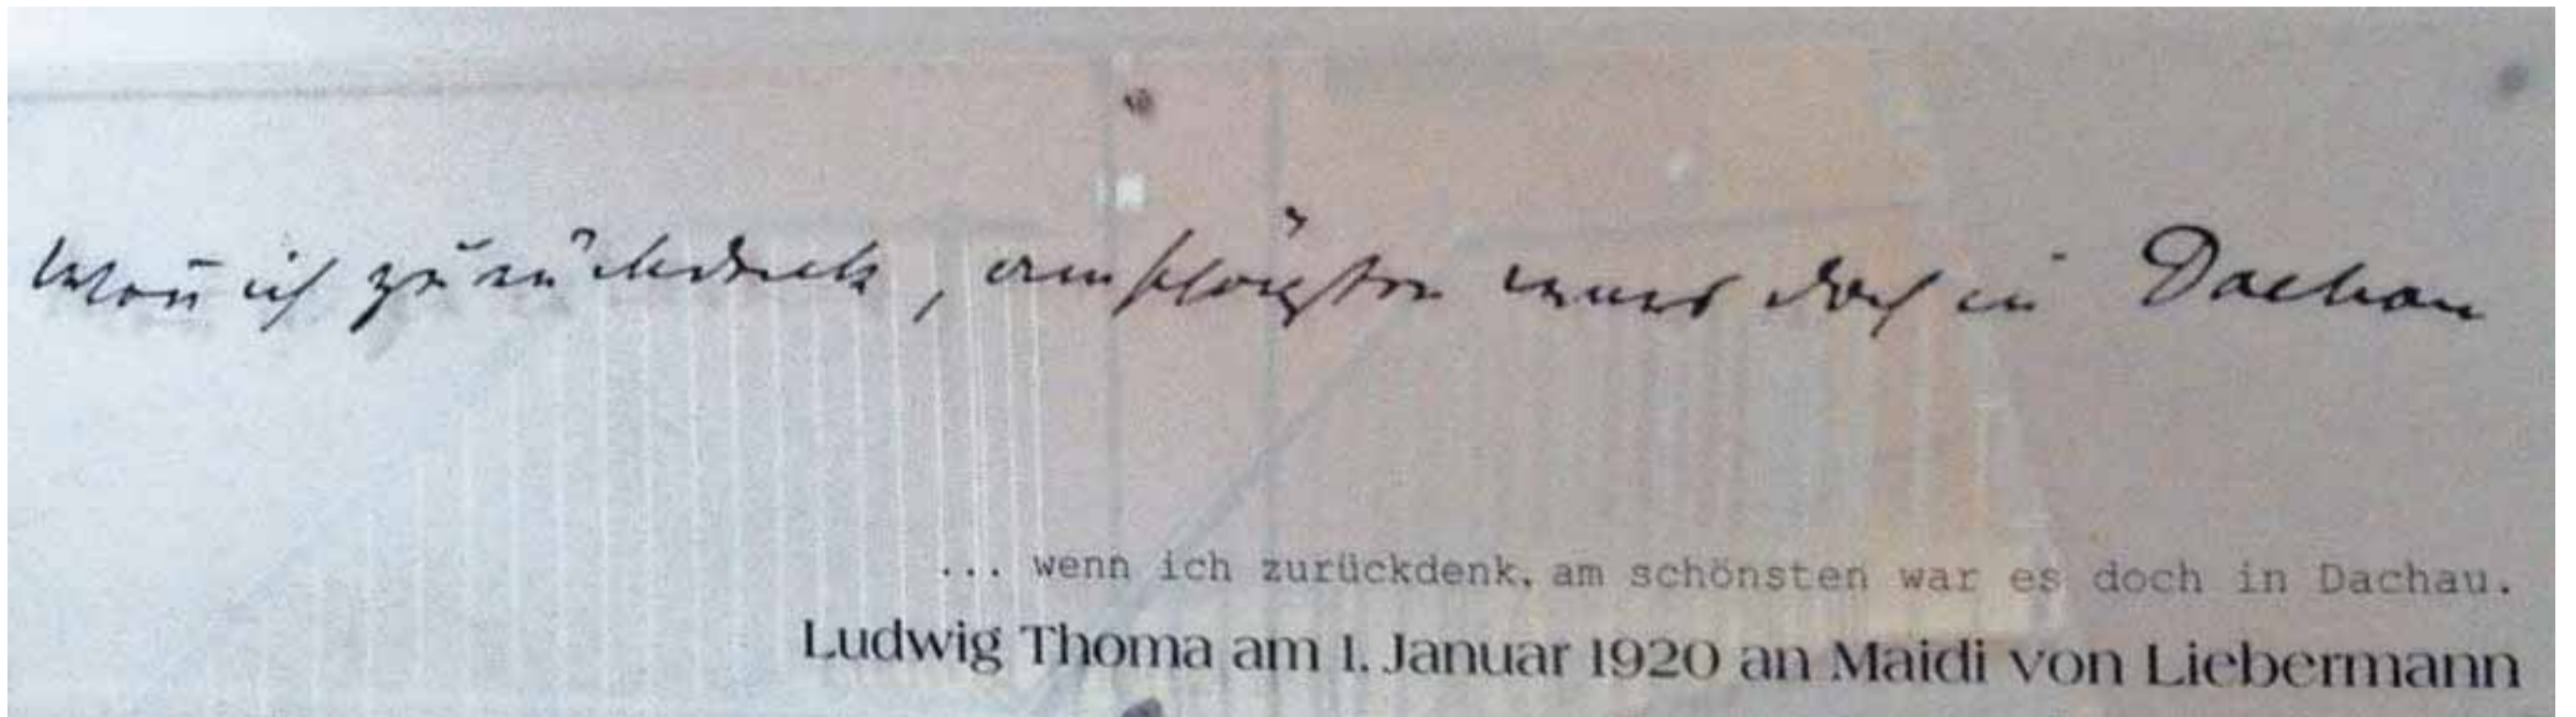 Wenn ich zurückdenk, am schönsten war es doch in Dachau
... wenn ich zurückdenk, am schönsten war es doch in Dachau.
Ludwig Thoma am 1. Januar 1920 an Maidi von Liebermann